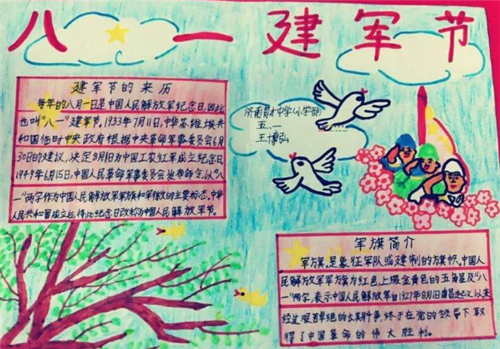 八一建军节
建军节的来历
每年的八月一日是中国人民解放军纪念日,因此
也叫“八一”建军节。1933年7月11日,中华苏维埃共
和国临时中央政府根据中央革命军事委员会6月
30日的建议,决定8月1日为中国工农红军成立纪念日。
1949年6月15日,中国人民革命军事委员会发布命令,以“八
一”两字作为中国人民解放军军旗和军徽的主要标志。中华
人民共和国成立后,将此纪念日改称为中国人民解放军建军节。
五.一
王博弘
军旗简介
军旗,是象征军队或建制的旗帜,中国人
民解放军军旗为红色,上缀金黄色的五角星及“八
一”两字,表示中国人民解放军自1927年8月1日南昌起义以来
经过艰苦卓绝的长期斗争,终于在党的领导下取
得了中国革命的伟大胜利。